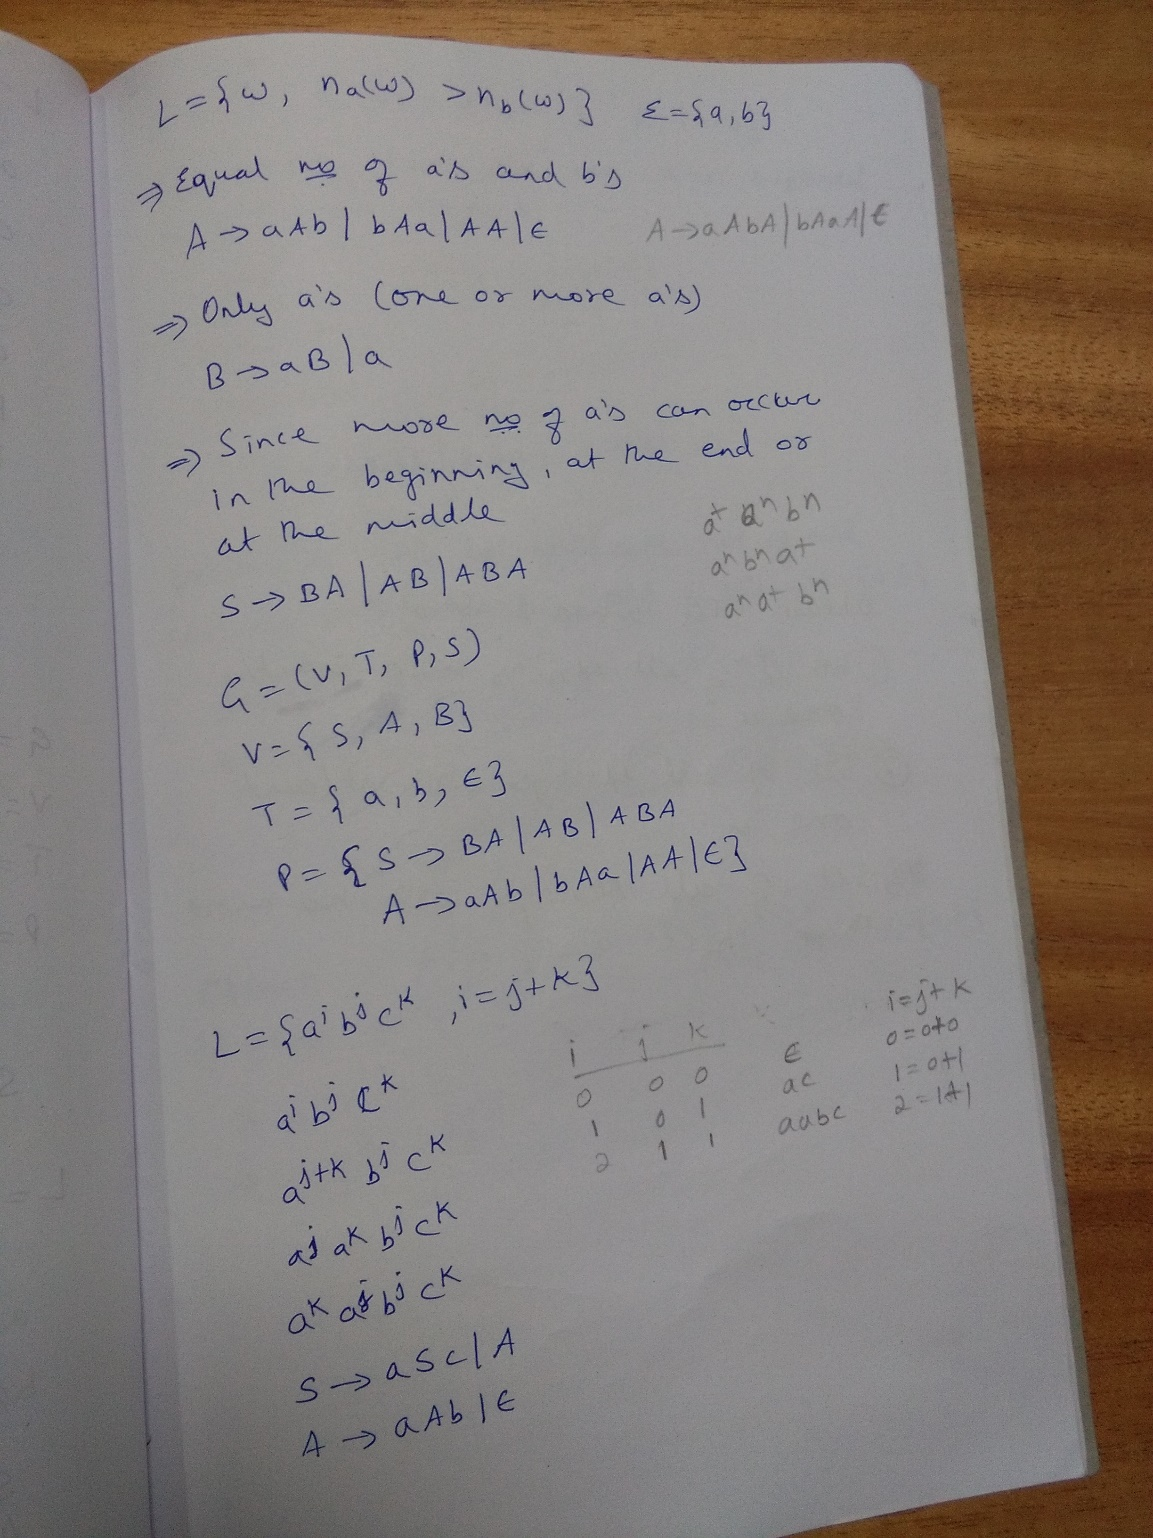 L = {w, na(w) > nb(w)} Σ={a,b}
⇒ Equal no of a's and b's
A → aAb | bAa | AA | ε A→aAbA|bAaA|ε
⇒ Only a's (one or more a's)
B → aB | a
⇒ Since more no of a's can occur
in the beginning, at the end or
at the middle
a⁺ aⁿ bⁿ
aⁿ bⁿ a⁺
S → BA | AB | ABA
aⁿ a⁺ bⁿ
G = (V, T, P, S)
V = { S, A, B}
T = { a, b, ε}
P = { S → BA | AB | ABA
A → aAb | bAa | AA | ε}
L = {aⁱ bʲ cᵏ , i = j+k}
aⁱ bʲ cᵏ
aʲ⁺ᵏ bʲ cᵏ
aʲ aᵏ bʲ cᵏ
aᵏ aʲ bʲ cᵏ
S → aSc | A
A → aAb | ε
i j k i=j+k
0 0 0 ε 0=0+0
1 0 1 ac 1=0+1
2 1 1 aabc 2=1+1